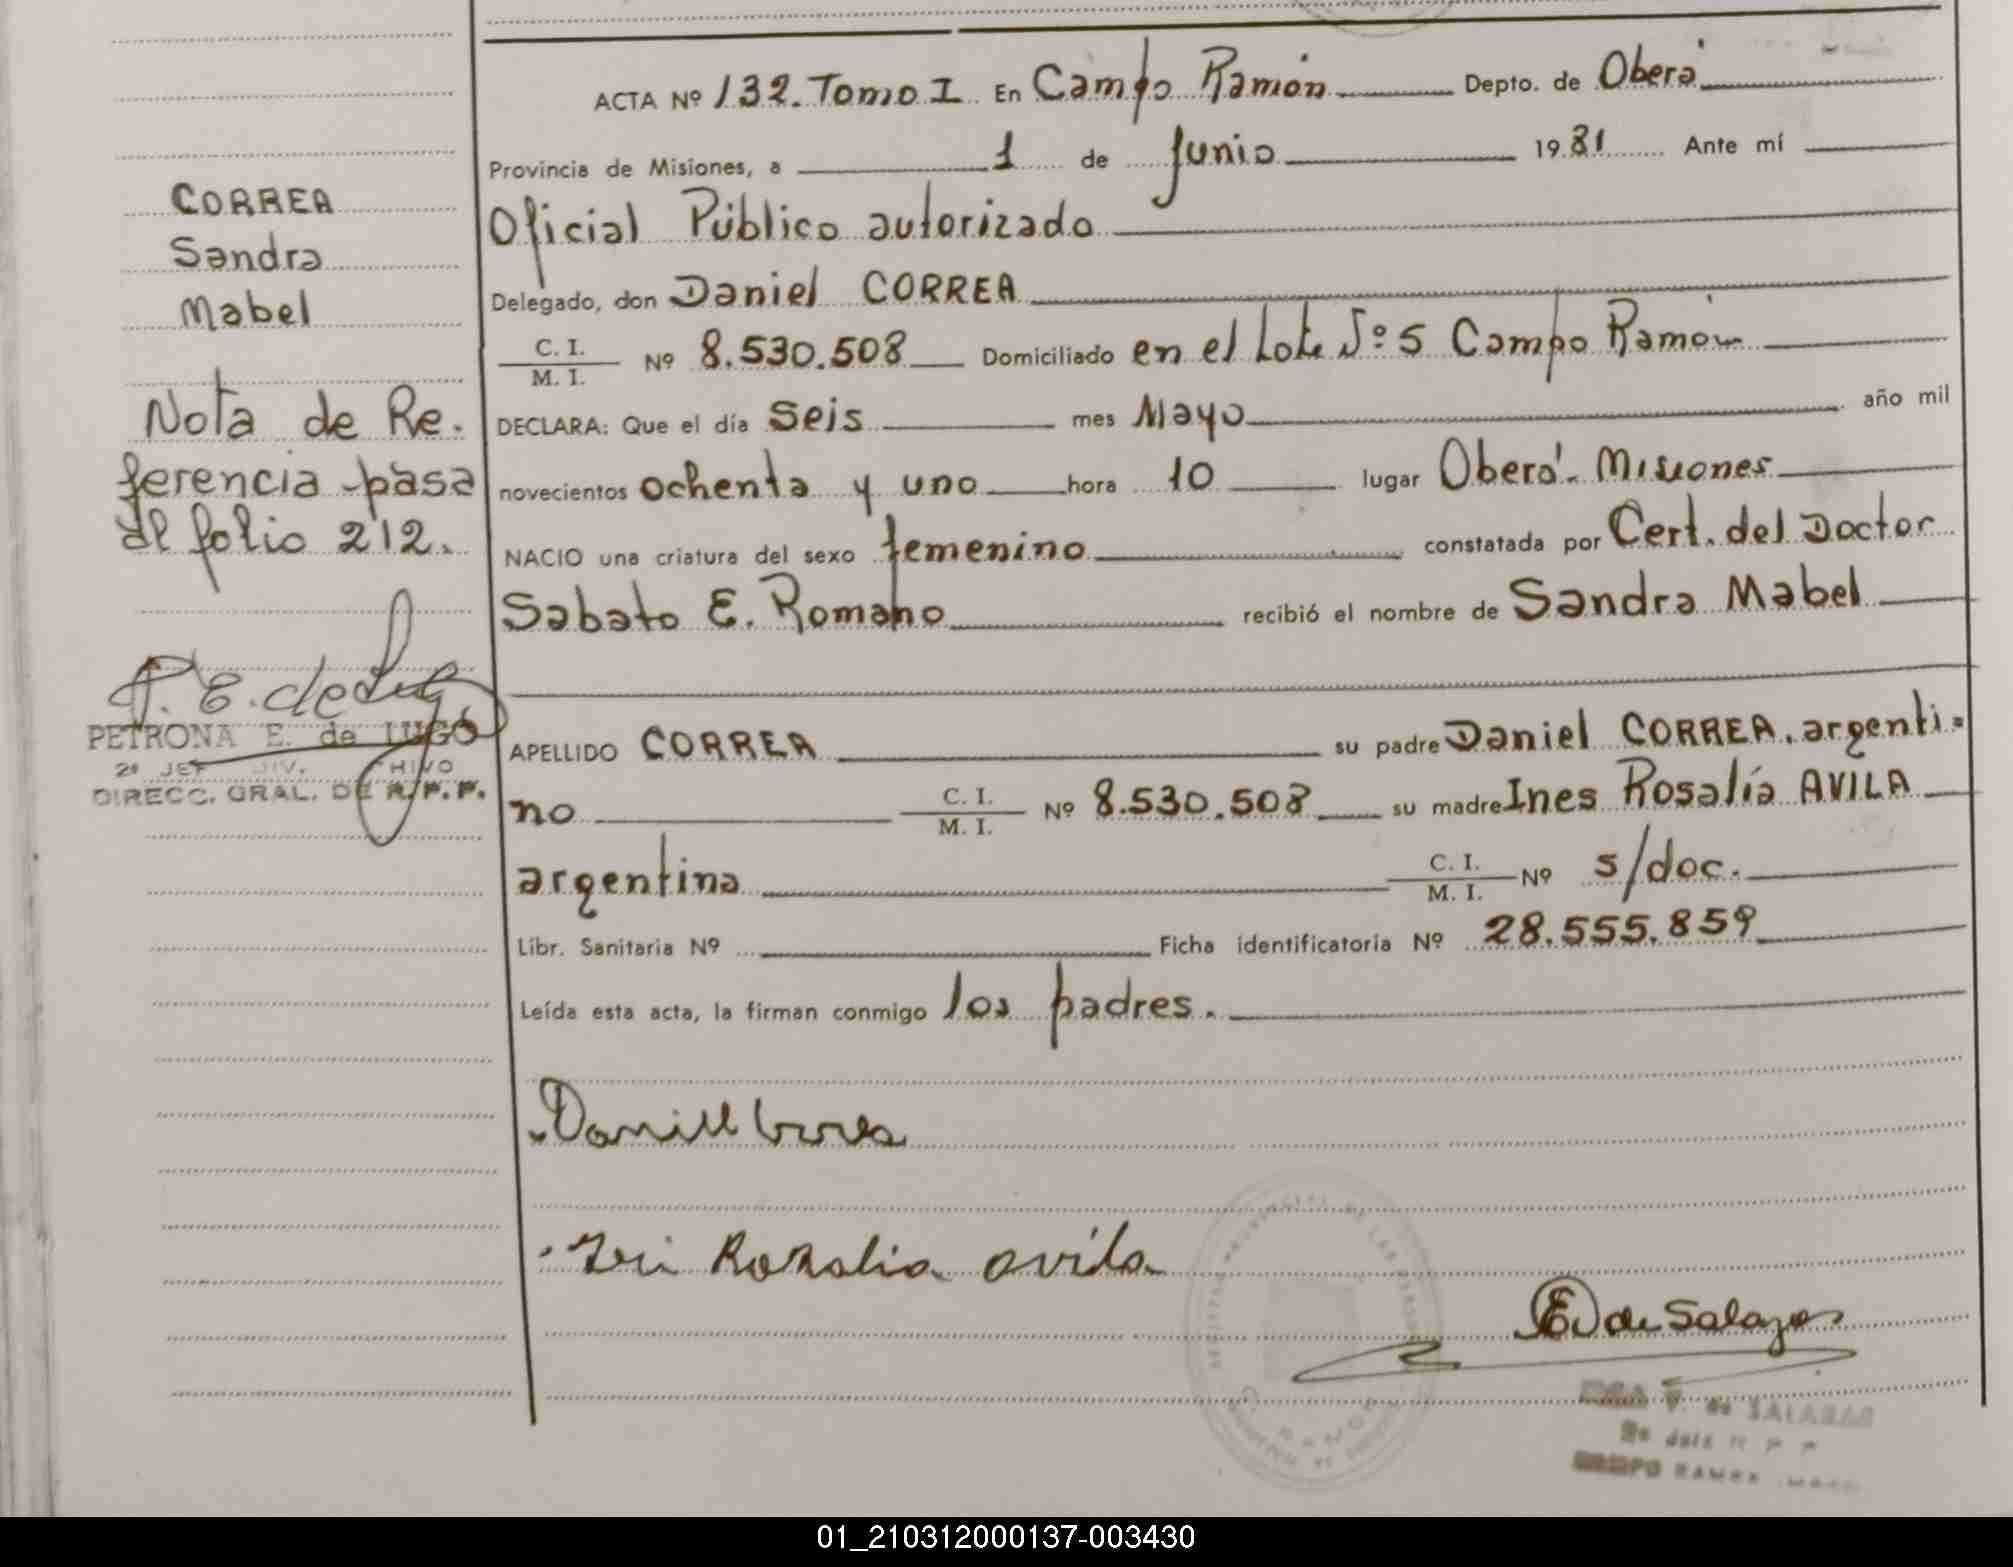 ACTA Nº 132. Tomo I En Campo Ramón Depto. de Oberá
Provincia de Misiones, a 1 de Junio 1981 Ante mí
Oficial Público autorizado
Delegado, don Daniel CORREA
C. I.
M. I. Nº 8.530.508 Domiciliado en el Lote Nº 5 Campo Ramón
DECLARA: Que el día Seis mes Mayo año mil
novecientos ochenta y uno hora 10 lugar Oberá - Misiones
NACIO una criatura del sexo femenino constatada por Cert. del Doctor
Sabato E. Romano recibió el nombre de Sandra Mabel
APELLIDO CORREA su padre Daniel CORREA, argenti=
no C. I.
M. I. Nº 8.530.508 su madre Ines Rosalía AVILA
argentina C. I.
M. I. Nº s/doc.
Libr. Sanitaria Nº Ficha identificatoria Nº 28.555.859
Leída esta acta, la firman conmigo los padres.
Rosalia avila
E de Salazar
de SALAZAR
CORREA
Sandra
Mabel
Nota de Re.
ferencia pasa
al folio 212.
P. E. de Lugo
PETRONA E. de LUGO
DIRECC. GRAL. DE R.P.P.
01_210312000137-003430